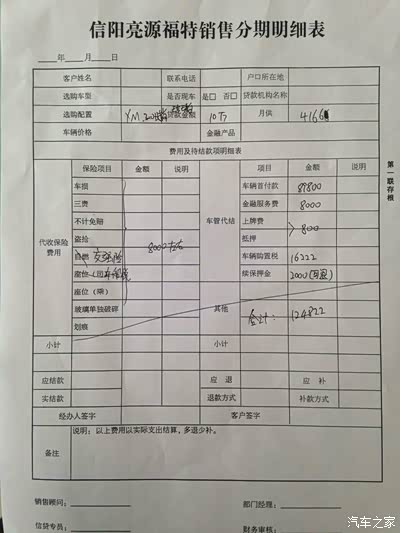 信阳亮源福特销售分期明细表
年 月 日
客户姓名 联系电话 户口所在地
选购车型 是否现车 是□ 否□ 贷款机构名称
选购配置 贷款金额 10万 月供
车辆价格 金融产品
费用及待结款项明细表
保险项目 金额 说明 项目 金额 说明
代收保险费用 车损 车管代结 车辆首付款 89800
三责 金融服务费 8000
不计免赔 上牌费 800
盗抢 8000左右 抵押
自燃 交强险 车辆购置税 16222
座位（司） 车船税 续保押金 2000（可退）
座位（乘） 其他
玻璃单独破碎 合计： 124822
划痕
小计 小计
应结款 应 退 应 补
实结款 退款方式 补款方式
经办人签字 客户签字
备注 说明：以上费用以实际支出结算，多退少补。
销售顾问： 部门经理：
信贷专员： 财务审核：
第一联存根
汽车之家